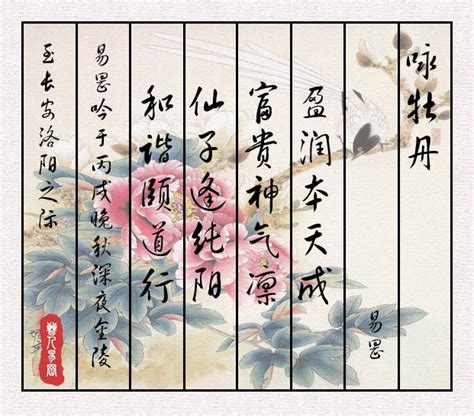 咏牡丹
易罡
盈润本天成
富贵神气凛
仙子逢纯阳
和谐颐道行
易罡吟于丙戌晚秋深夜金陵
至长安洛阳之际